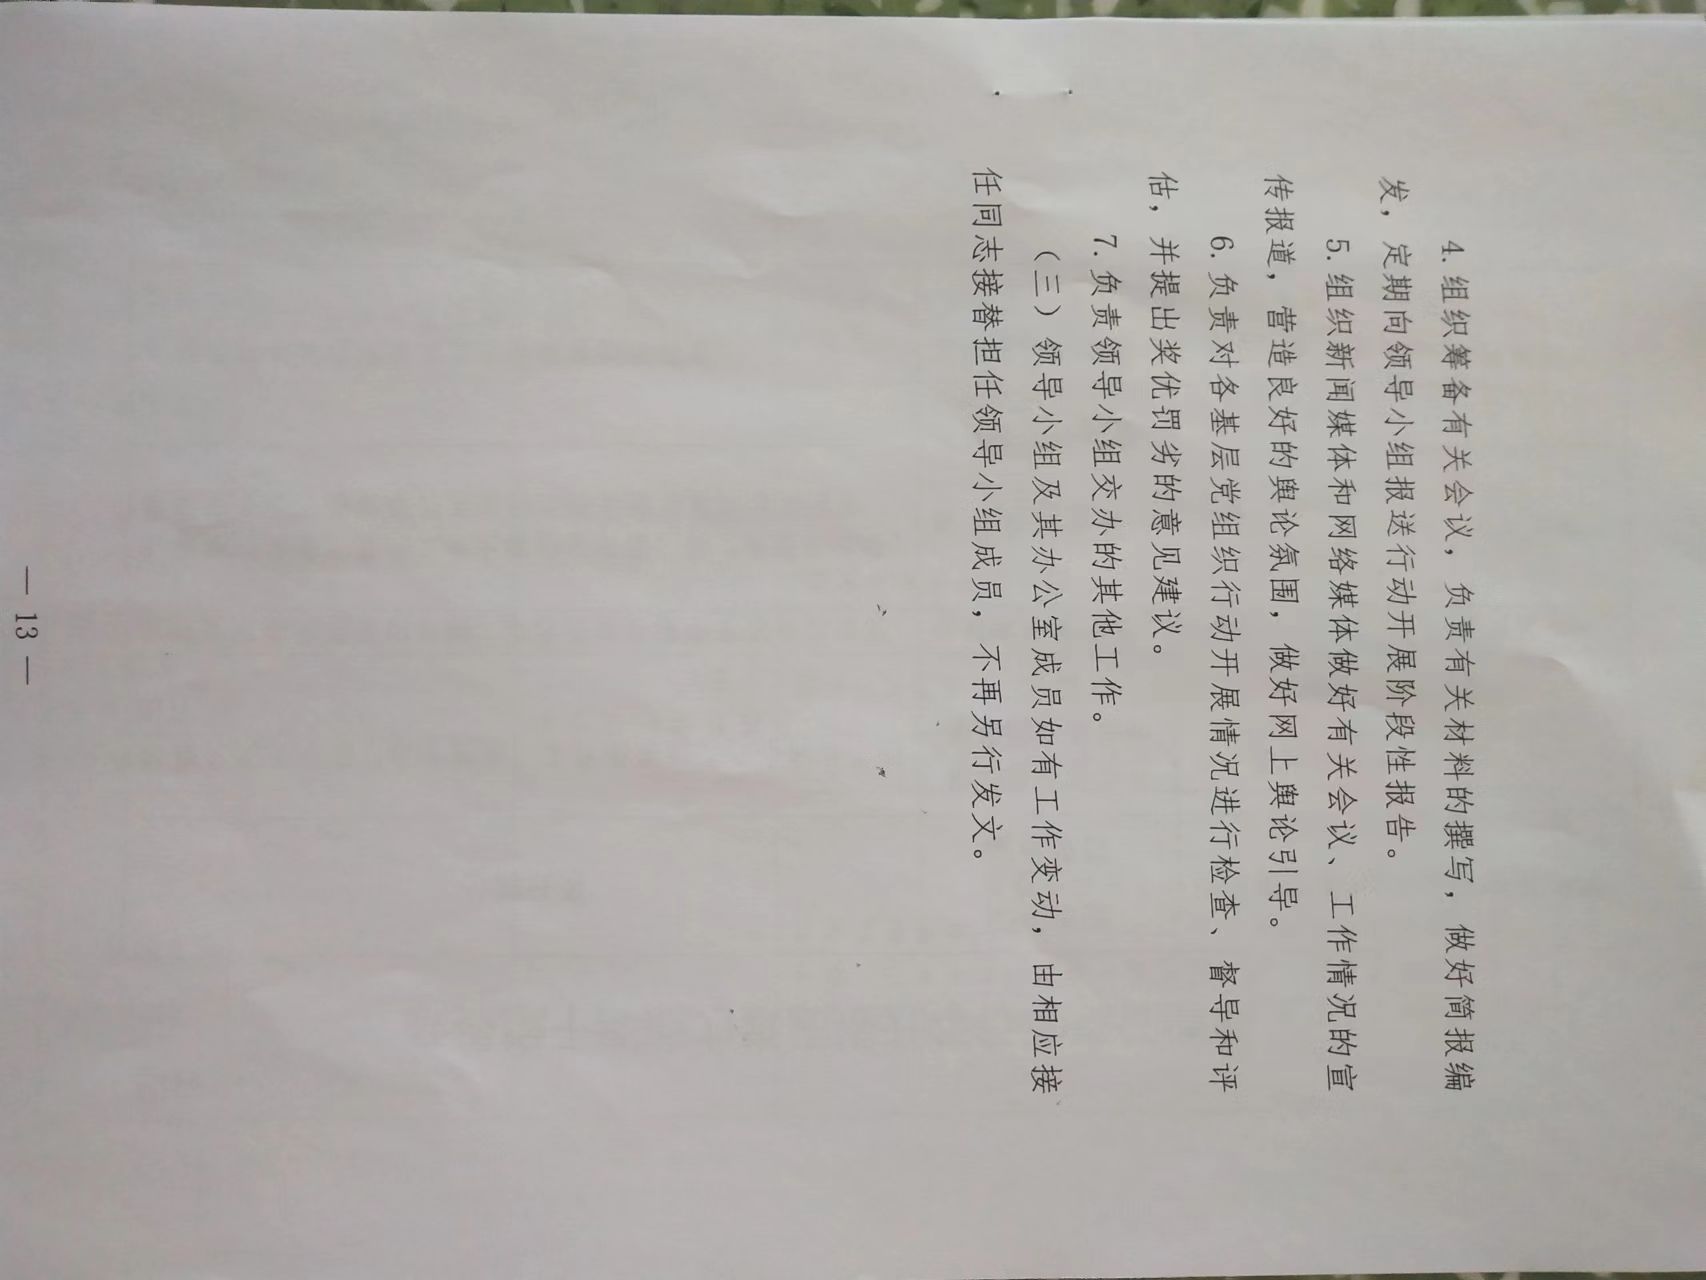 4. 组织筹备有关会议，负责有关材料的撰写，做好简报编
发，定期向领导小组报送行动开展阶段性报告。
5. 组织新闻媒体和网络媒体做好有关会议、工作情况的宣
传报道，营造良好的舆论氛围，做好网上舆论引导。
6. 负责对各基层党组织行动开展情况进行检查、督导和评
估，并提出奖优罚劣的意见建议。
7. 负责领导小组交办的其他工作。
（三）领导小组及其办公室成员如有工作变动，由相应接
任同志接替担任领导小组成员，不再另行发文。
— 13 —